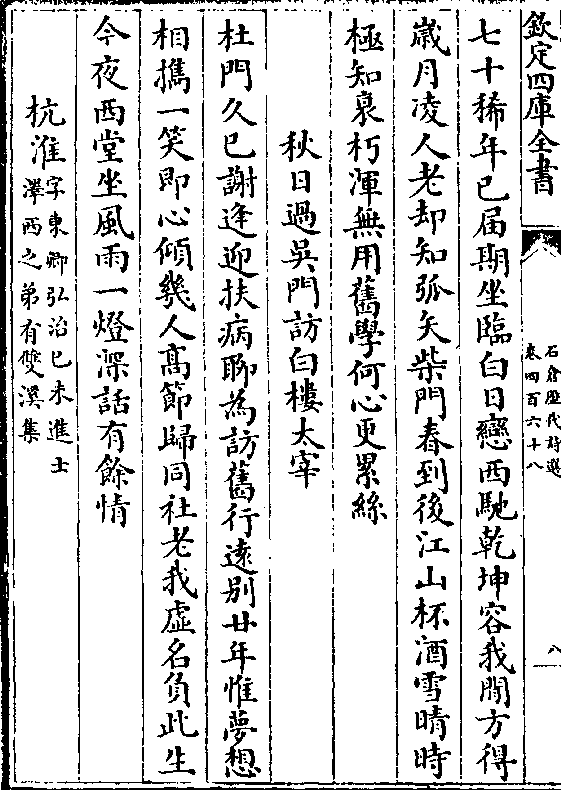 欽定四庫全書
石倉歷代詩選
卷四百六十八
八
七十稀年已届期坐臨白日戀西馳乾坤容我閒方得
歲月凌人老却知弧矢柴門春到後江山杯酒雪晴時
極知衰朽渾無用舊學何心更累絲
秋日過吳門訪白樓太宰
杜門久已謝逢迎扶病聊為訪舊行遠别廿年惟夢想
相攜一笑即心傾幾人髙節歸同社老我虚名負此生
今夜西堂坐風雨一燈深話有餘情
杭淮字東卿弘治己未進士
澤西之弟有雙溪集